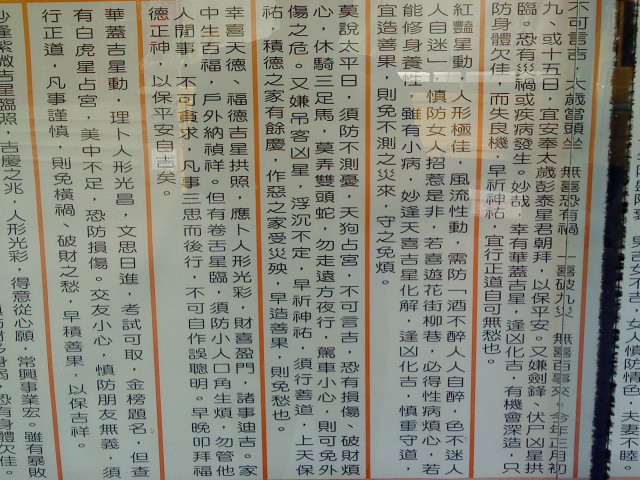 吉，不可言吉，女人慎防情色，夫妻不睦。
不可言吉，太歲當頭坐，無喜恐有禍，一喜破九災，無喜百事來，今年正月初
九、或十五日，宜安奉太歲彭泰星君朝拜，以保平安。又嫌劍鋒、伏尸凶星拱
臨。恐有災禍或疾病發生。妙哉，幸有華蓋吉星，逢凶化吉，有機會深造，只
防身體欠佳，而失良機，早祈神祐，宜行正道自可無愁也。
紅豔星動，人形極佳，風流性動，需防「酒不醉人人自醉，色不迷人
人自迷」，慎防女人招惹是非，若喜遊花街柳巷，必得性病煩心，若
能修身養性，雖有小病，妙逢天喜吉星化解，逢凶化吉，慎重守道，
宜造善果，則免不測之災來，守之免煩。
莫說太平日，須防不測憂，天狗占宮，不可言吉，恐有損傷、破財煩
心，休騎三足馬，莫弄雙頭蛇，勿走遠方夜行，駕車小心，則可免外
傷之危。又嫌吊客凶星，浮沉不定，早祈神祐，須行善道，上天保
祐，積德之家有餘慶，作惡之家受災殃，早造善果，則免愁也。
幸喜天德、福德吉星拱照，應卜人形光彩，財喜盈門，諸事迪吉。家
中生百福，戶外納禎祥。但有卷舌星臨，須防小人口角生煩，勿管他
人閒事，不可貪求，凡事三思而後行，不可自作誤聰明。早晚叩拜福
德正神，以保平安自吉矣。
華蓋吉星動，理卜人形光昌，文思日進，考試可取，金榜題名，但查
有白虎星占宮，美中不足，恐防損傷。交友小心，慎防朋友無義，須
行正道，凡事謹慎，則免橫禍、破財之愁，早積善果，以保吉祥。
逢紫微吉星臨照，吉慶之兆，人形光彩，得意從心願，常興事業宏。雖有暴敗
身弱，恐有身體欠佳。